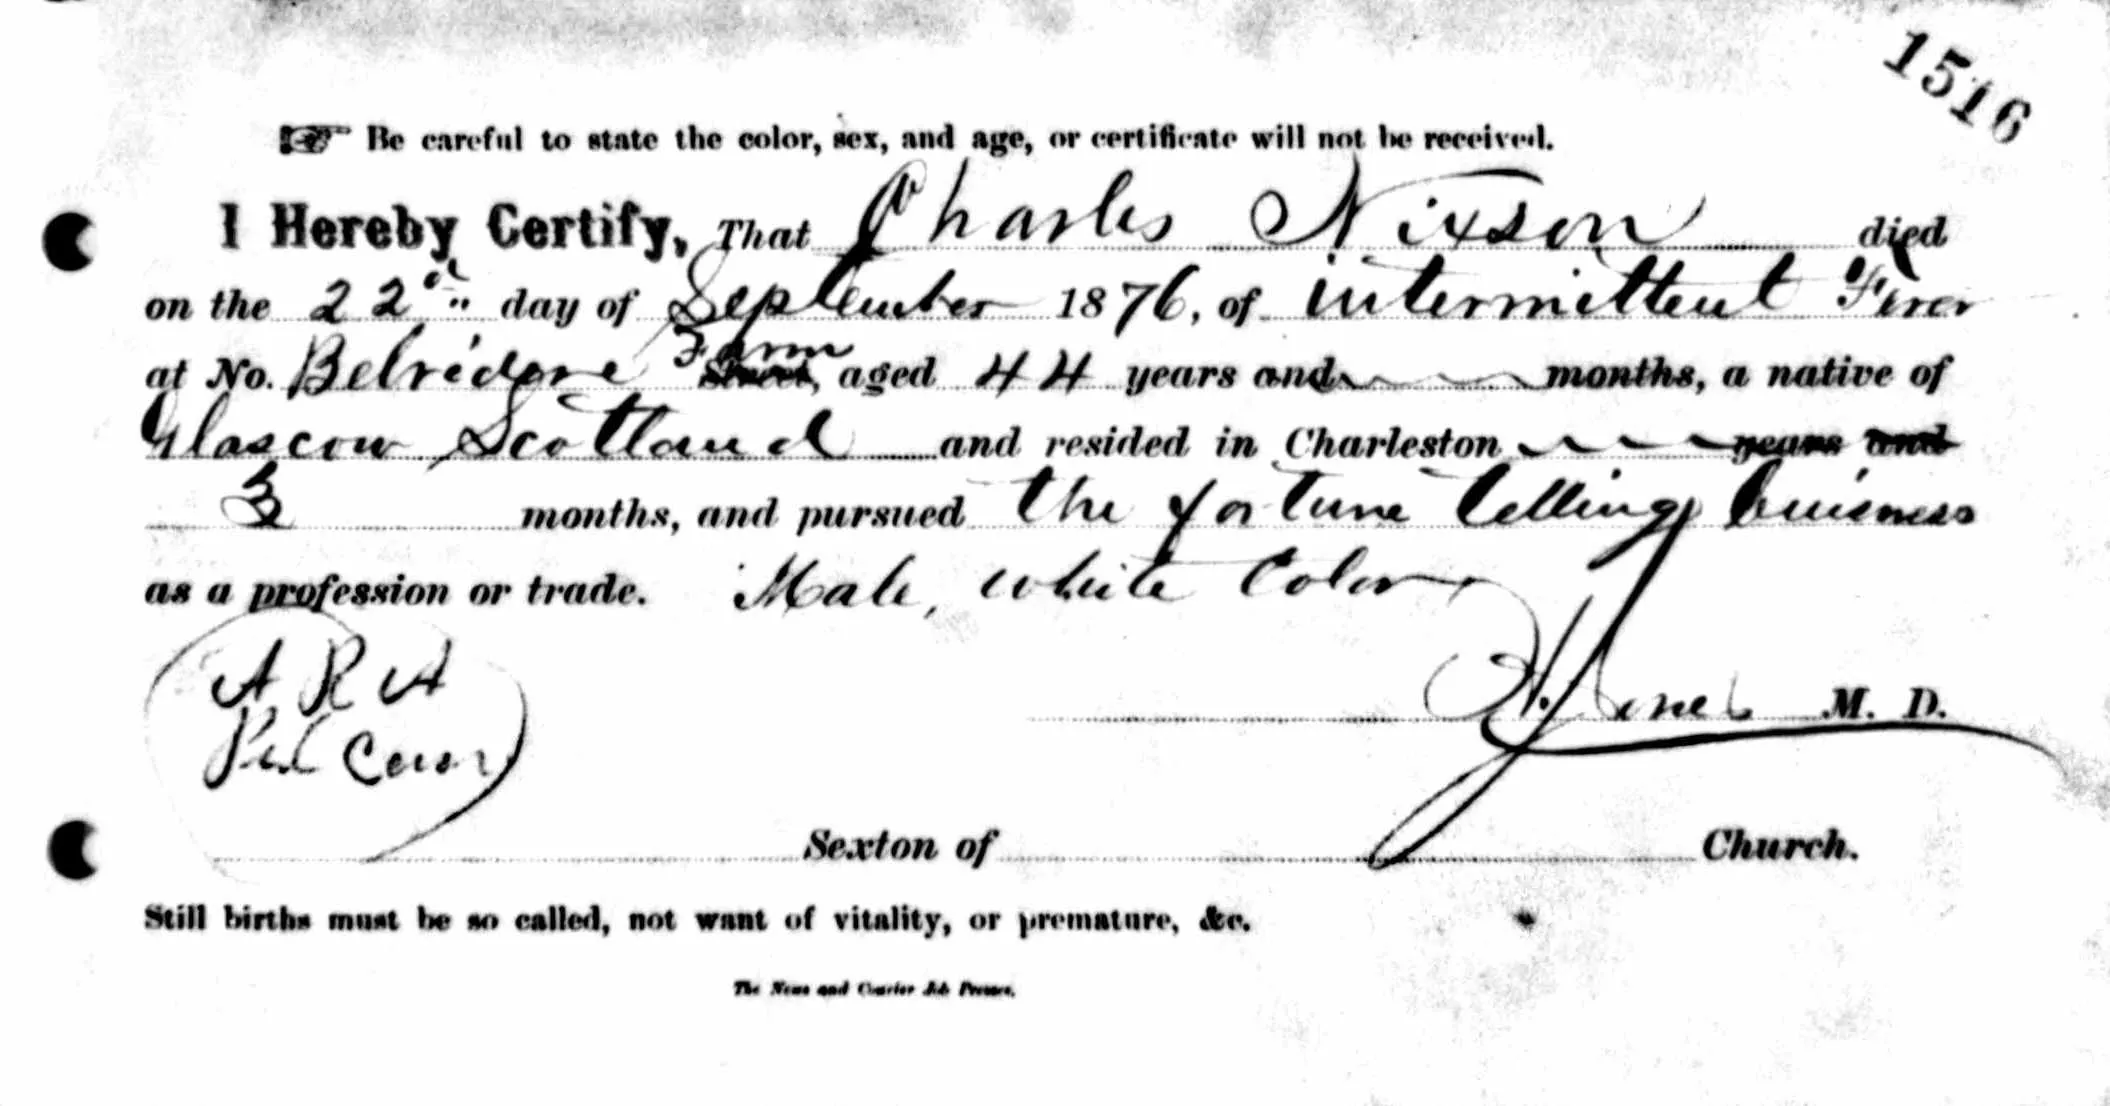 1516
Be careful to state the color, sex, and age, or certificate will not be received.
I Hereby Certify, That Charles Nixson died
on the 22d day of September 1876, of intermittent Fever
at No. Belvidere Farm Street, aged 44 years and months, a native of
Glascow Scotland and resided in Charleston years and
3 months, and pursued the fortune telling buisness
as a profession or trade. Male, white Color
A R A
H. Jones M. D.
Sexton of Church.
Still births must be so called, not want of vitality, or premature, &c.
The News and Courier Job Presses.